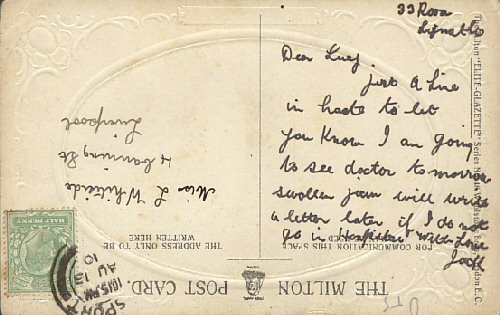 33 Rosa
Dear Lucy.
Just A Line
in haste to let
you Know I am going
to see doctor to morrow
swollen jaw will write
a letter later if I do not
go in Hospital With Love
Jack
Miss L Whiteside
4 Canning St
Liverpool
THE ADDRESS ONLY TO BE
WRITTEN HERE
FOR COMMUNICATION THIS SPACE
THE MILTON POST CARD.
The Milton "ELITE-GLAZETTE" Series
London E.C.
HALF PENNY
11.15 PM
AU 13
10